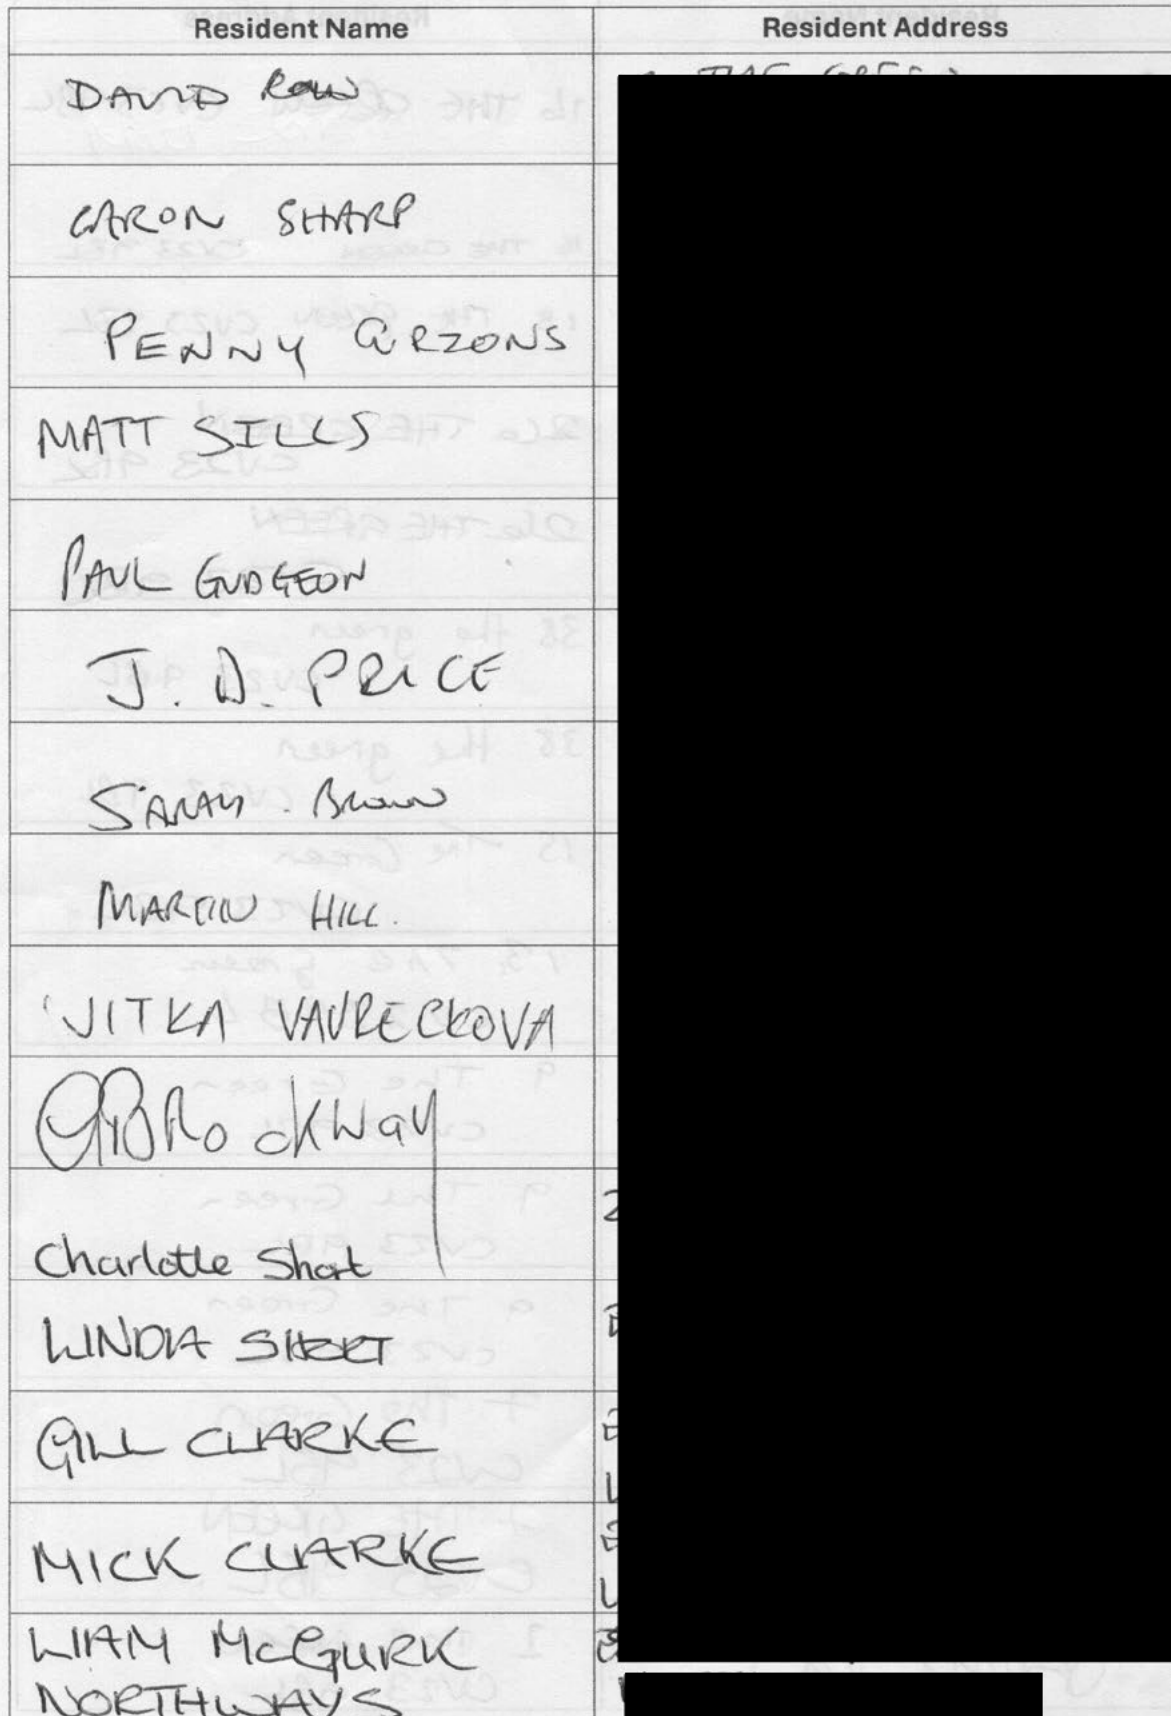 Resident Name Resident Address
DAVID ROW
CARON SHARP
PENNY
MATT SILLS
PAUL GUDGEON
J. D. PRICE
SARAH BROWN
MARTIN HILL.
JITKA VAVRECKOVA
Brockway
Charlotte Short
LINDA SHORT
GILL CLARKE
MICK CLARKE
LIAM McGURK
NORTHWAYS